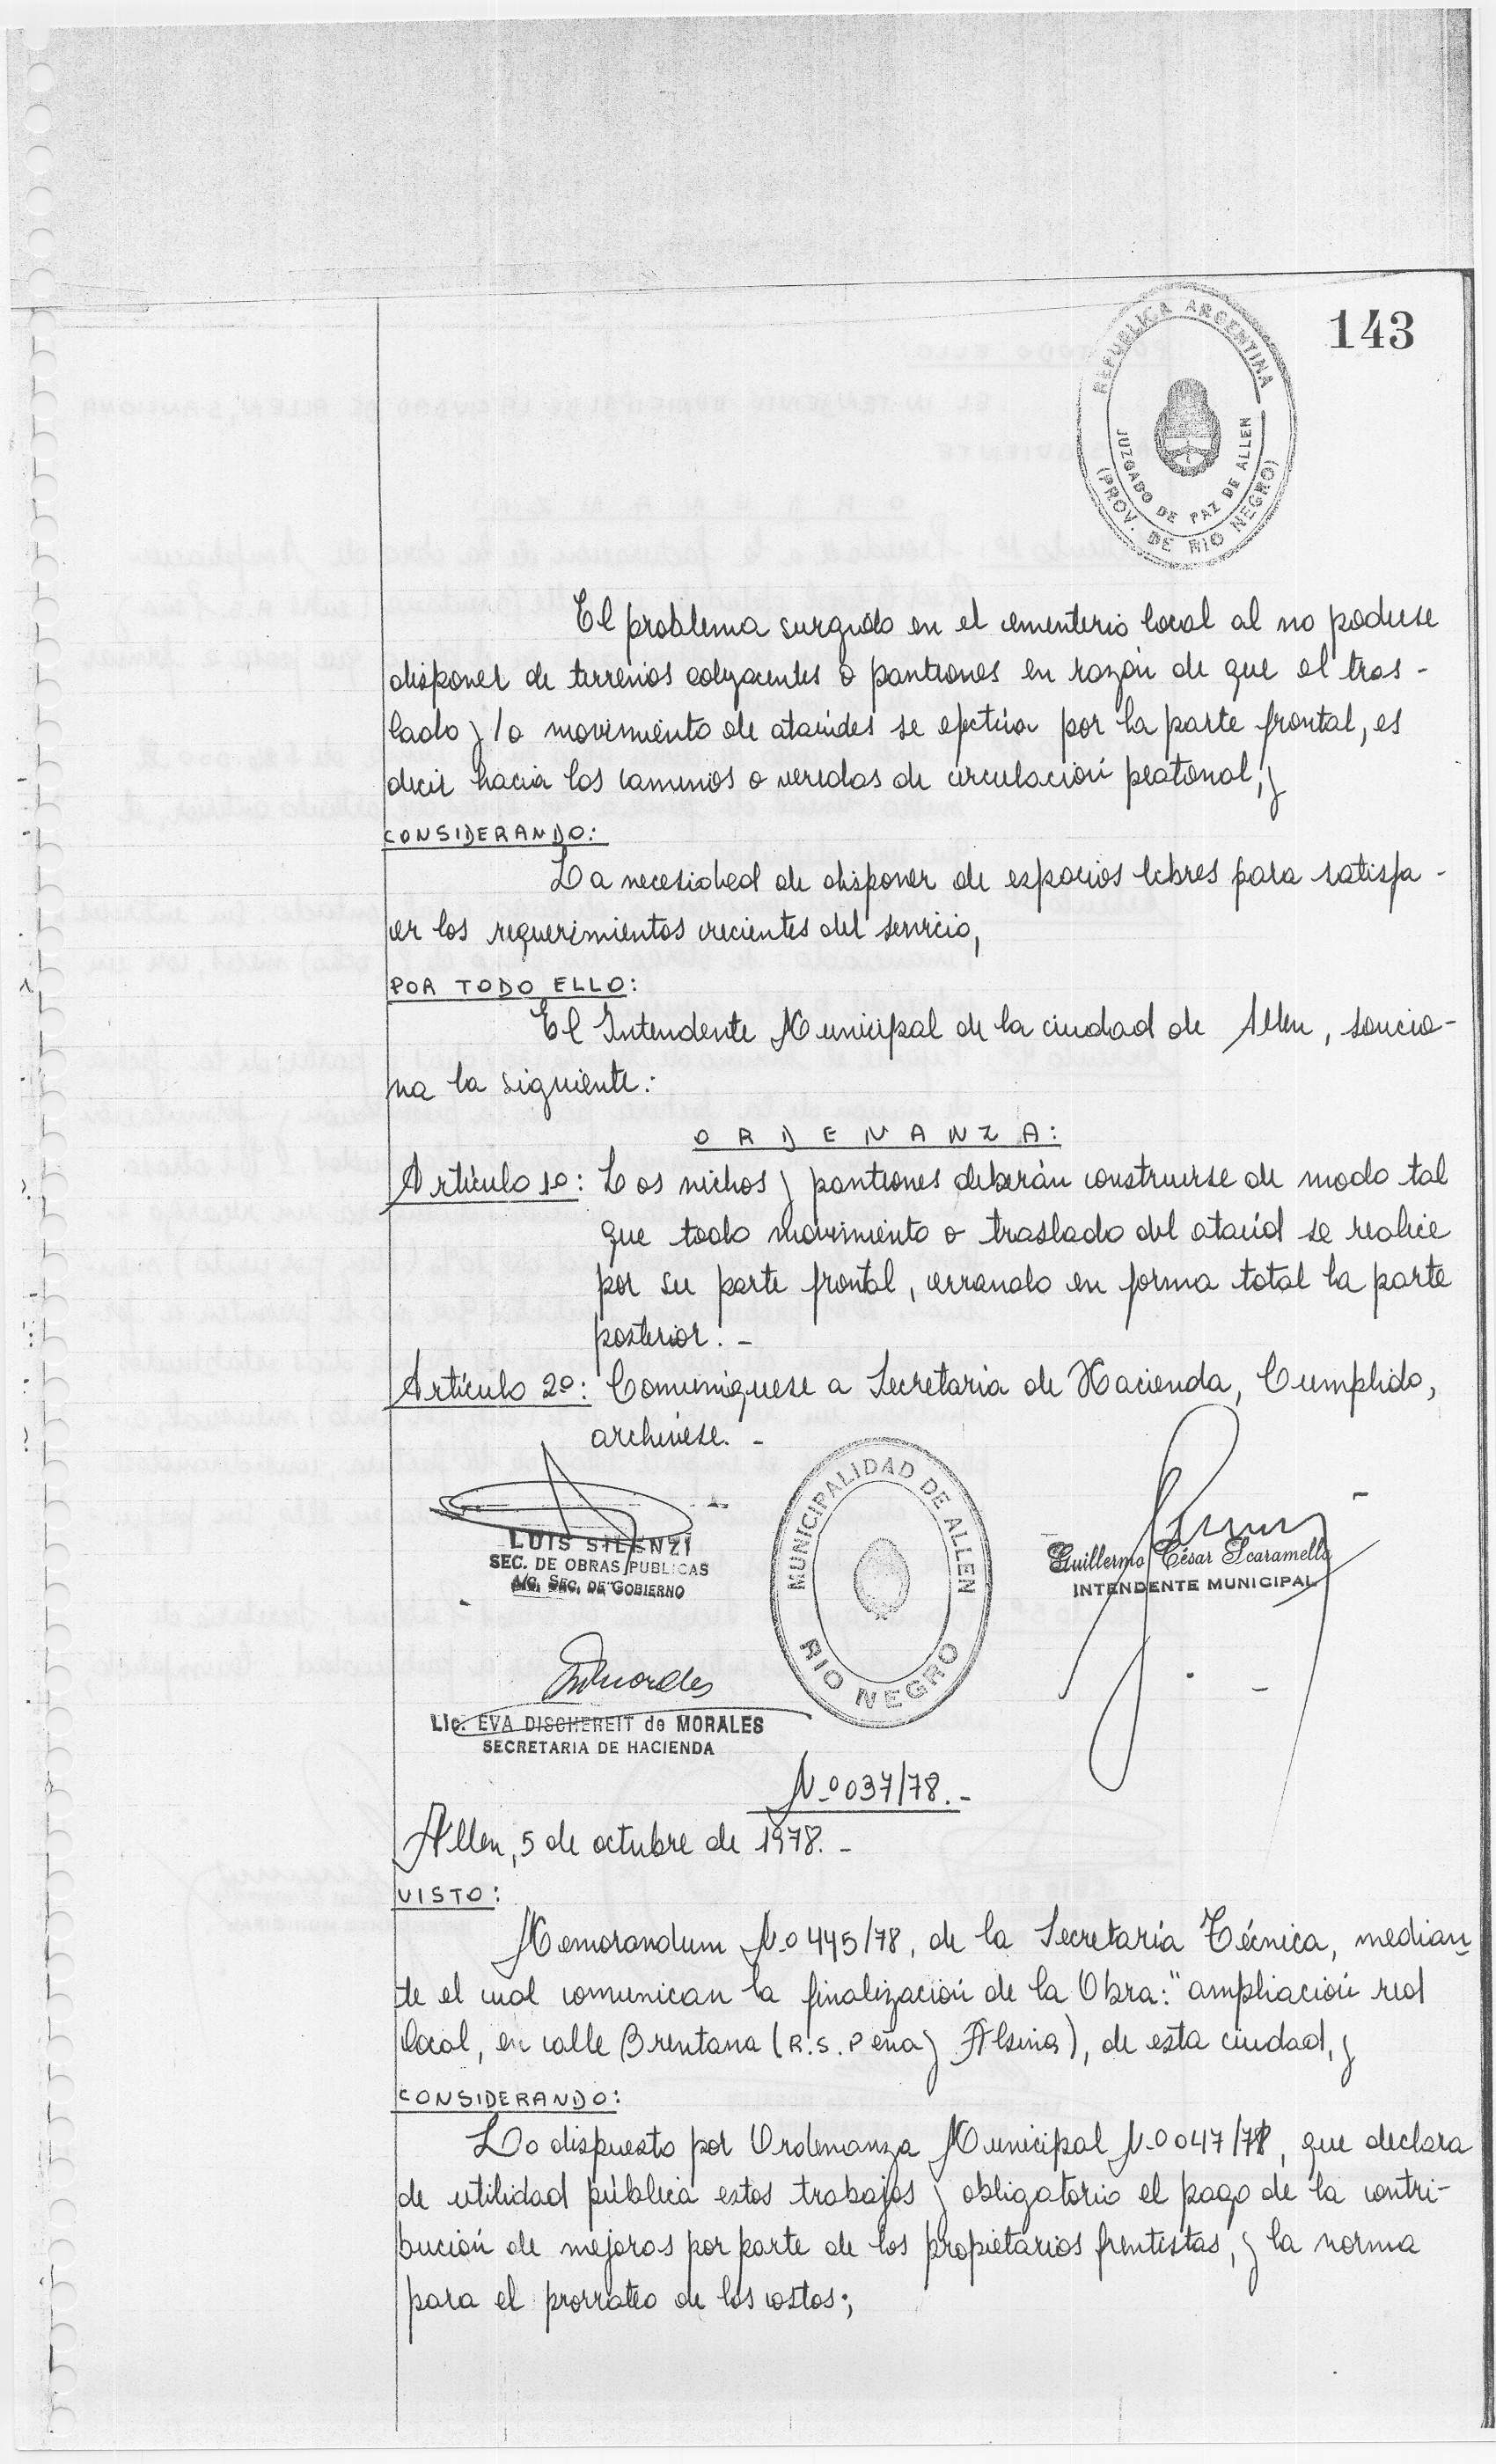 143
REPUBLICA ARGENTINA
JUZGADO DE PAZ DE ALLEN
(PROV. DE RIO NEGRO)
El problema surgido en el cementerio local al no poderse
disponer de terrenos adyacentes o panteones en razón de que el tras-
lado y/o movimiento de ataúdes se efectúa por la parte frontal, es
decir hacia los caminos o veredas de circulación peatonal, y
CONSIDERANDO:
La necesidad de disponer de espacios libres para satisfa-
cer los requerimientos crecientes del servicio,
POR TODO ELLO:
El Intendente Municipal de la ciudad de Allen, sancio-
na la siguiente:
ORDENANZA:
Artículo 1º: Los nichos y panteones deberán construirse de modo tal
que todo movimiento o traslado del ataúd se realice
por su parte frontal, cerrando en forma total la parte
posterior.-
Artículo 2º: Comuníquese a Secretaría de Hacienda, Cumplido,
archívese.-
LUIS SILENZI
SEC. DE OBRAS PUBLICAS
A/C. SEC. DE GOBIERNO
MUNICIPALIDAD DE ALLEN
RIO NEGRO
Guillermo César Scaramella
INTENDENTE MUNICIPAL
Lic. EVA DISCHEREIT de MORALES
SECRETARIA DE HACIENDA
Nº 037/78.-
Allen, 5 de octubre de 1978.-
VISTO:
Memorandum Nº 445/78, de la Secretaría Técnica, median
te el cual comunican la finalización de la Obra: "ampliación red
local, en calle Brentana (R.S. Peña y Alsina), de esta ciudad, y
CONSIDERANDO:
Lo dispuesto por Ordenanza Municipal Nº 047/78, que declara
de utilidad pública estos trabajos y obligatorio el pago de la contri-
bución de mejoras por parte de los propietarios frentistas, y la norma
para el prorrateo de los costos;